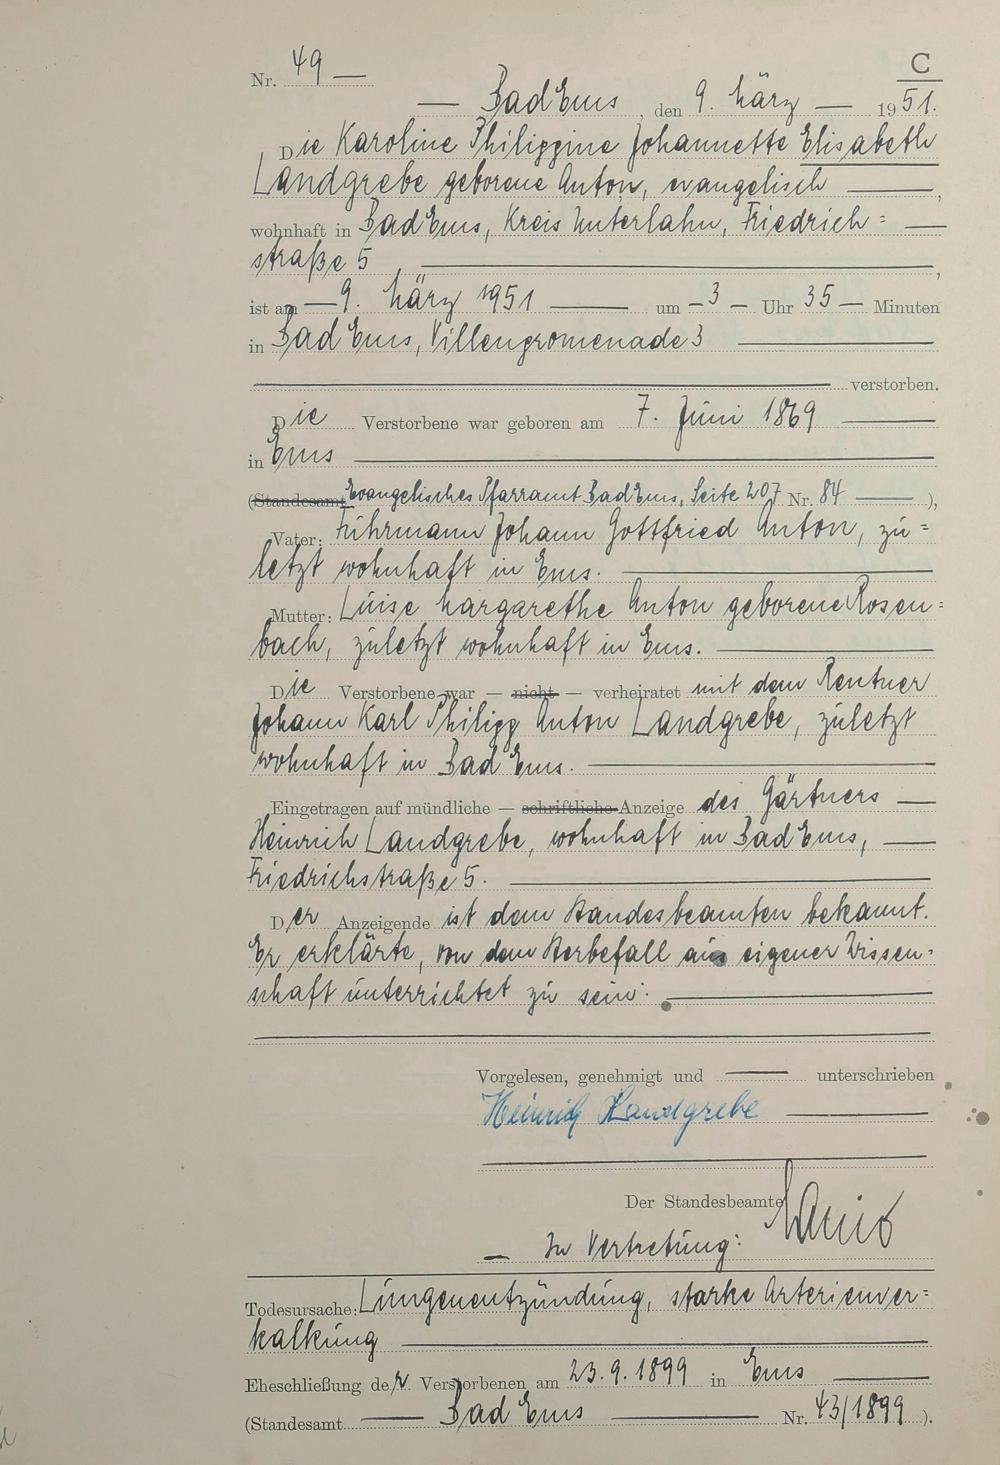 C
Nr. 49 —
— Bad Ems, den 9. März — 1951.
Die Karoline Philippine Johannette Elisabeth
Landgrebe geborene Anton, evangelisch —,
wohnhaft in Bad Ems, Kreis Unterlahn, Friedrich= —
straße 5 —,
ist am — 9. März 1951 — um — 3 — Uhr 35 — Minuten
in Bad Ems, Villenpromenade 3 —
— verstorben.
Die Verstorbene war geboren am 7. Juni 1869 —
in Ems —
(Standesamt Evangelisches Pfarramt Bad Ems, Seite 207 Nr. 84 —),
Vater: Fuhrmann Johann Gottfried Anton, zu=
letzt wohnhaft in Ems. —
Mutter: Luise Margarethe Anton geborene Rosen=
bach, zuletzt wohnhaft in Ems. —
Die Verstorbene war — nicht — verheiratet mit dem Rentner
Johann Karl Philipp Anton Landgrebe, zuletzt
wohnhaft in Bad Ems. —
Eingetragen auf mündliche — schriftliche Anzeige des Gärtners —
Heinrich Landgrebe, wohnhaft in Bad Ems, —
Friedrichstraße 5. —
Der Anzeigende ist dem Standesbeamten bekannt.
Er erklärte, von dem Sterbefall aus eigener Wissen=
schaft unterrichtet zu sein. —
Vorgelesen, genehmigt und — unterschrieben
Heinrich Landgrebe —
Der Standesbeamte
— In Vertretung:
Todesursache: Lungenentzündung, starke Arterienver=
kalkung —
Eheschließung der Verstorbenen am 23.9.1899 in Ems —
(Standesamt — Bad Ems — Nr. 43/1899).